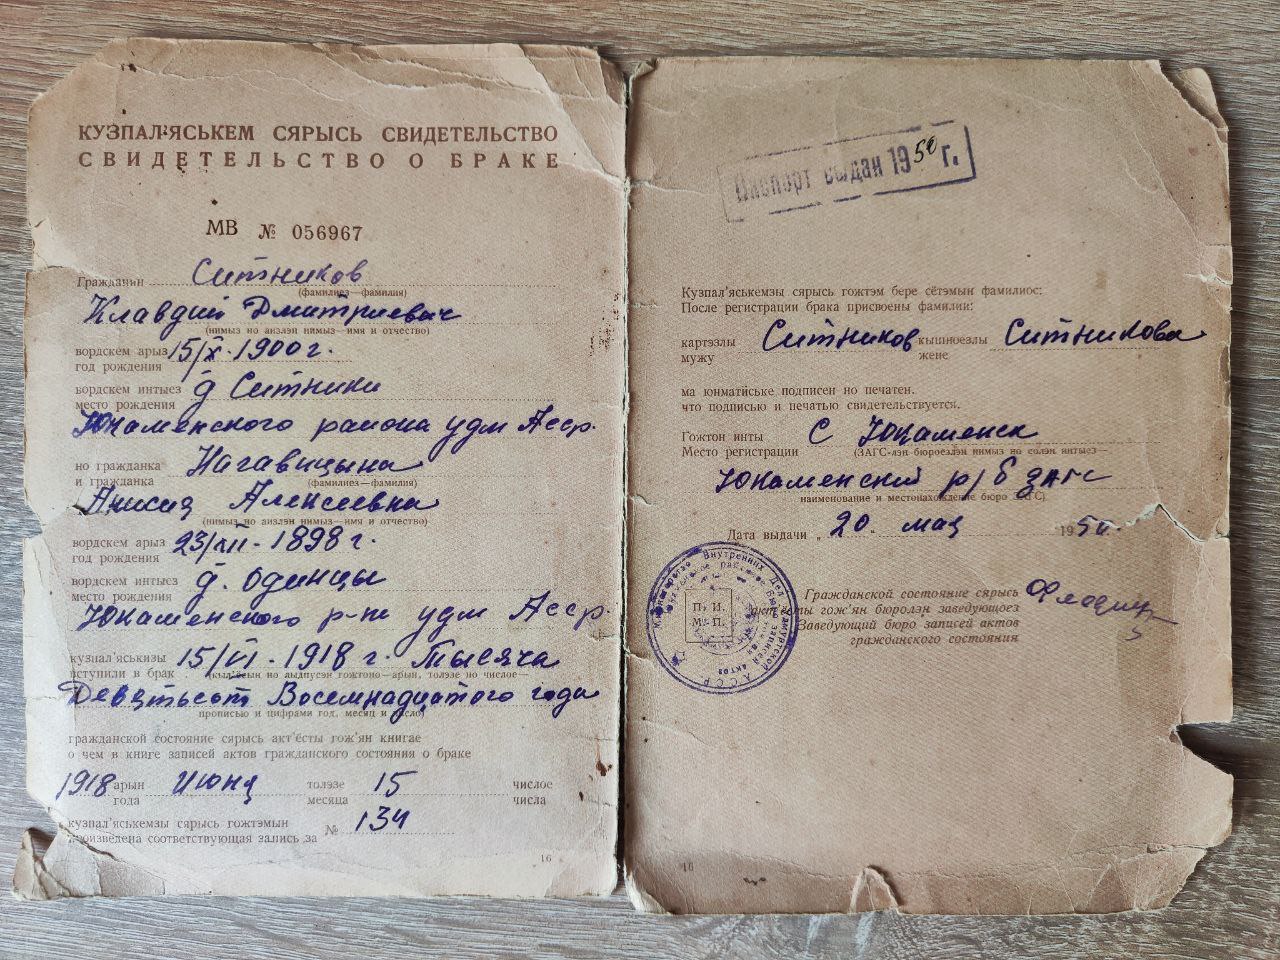 КУЗПАЛ'ЯСЬКЕМ СЯРЫСЬ СВИДЕТЕЛЬСТВО
СВИДЕТЕЛЬСТВО О БРАКЕ
МВ № 056967
Гражданин Ситников
(фамилиез—фамилия)
Клавдий Дмитриевич
(нимыз но аизлэн нимыз—имя и отчество)
вордскем арыз 15/X-1900 г.
год рождения
вордскем интыез д Ситники
место рождения
Юкаменского района удм Асср.
но гражданка Нагавицына
и гражданка (фамилиез—фамилия)
Анисия Алексеевна
(нимыз но аизлэн нимыз—имя и отчество)
вордскем арыз 23/XII-1898 г.
год рождения
вордскем интыез д. Одинцы
место рождения
Юкаменского р-на удм Асср.
кузпал'яськизы 15/VI-1918 г. Тысяча
вступили в брак (кыл'ёсын но лыдпусэн гожтоно—арын, толэзе но числое—
Девятьсот Восемнадцатого года
прописью и цифрами год, месяц и число)
гражданской состояние сярысь акт'ёсты гож'ян книгае
о чем в книге записей актов гражданского состояния о браке
1918 арын Июня толэзе 15 числое
года месяца числа
кузпал'яськемзы сярысь гожтэмын № 134
произведена соответствующая запись за
16
Паспорт выдан 1950 г.
Кузпал'яськемзы сярысь гожтэм бере сётэмын фамилиос:
После регистрации брака присвоены фамилии:
картэзлы Ситников кышноезлы Ситникова
мужу жене
ма юнматӥське подписен но печатен.
что подписью и печатью свидетельствуется.
Гожтон инты С Юкаменск
Место регистрации (ЗАГС-лэн бюроезлэн нимыз но солэн интыез—
Юкаменский р/б загс
наименование и местонахождение бюро ЗАГС)
Дата выдачи „20„ мая 1950.
Гражданской состояние сярысь
акт'ёсты гож'ян бюролэн заведующоез
Заведующий бюро записей актов
гражданского состояния
Внутренних Дел Удмуртской А.С.С.Р.
записей актов
П. И.
М. П.
16